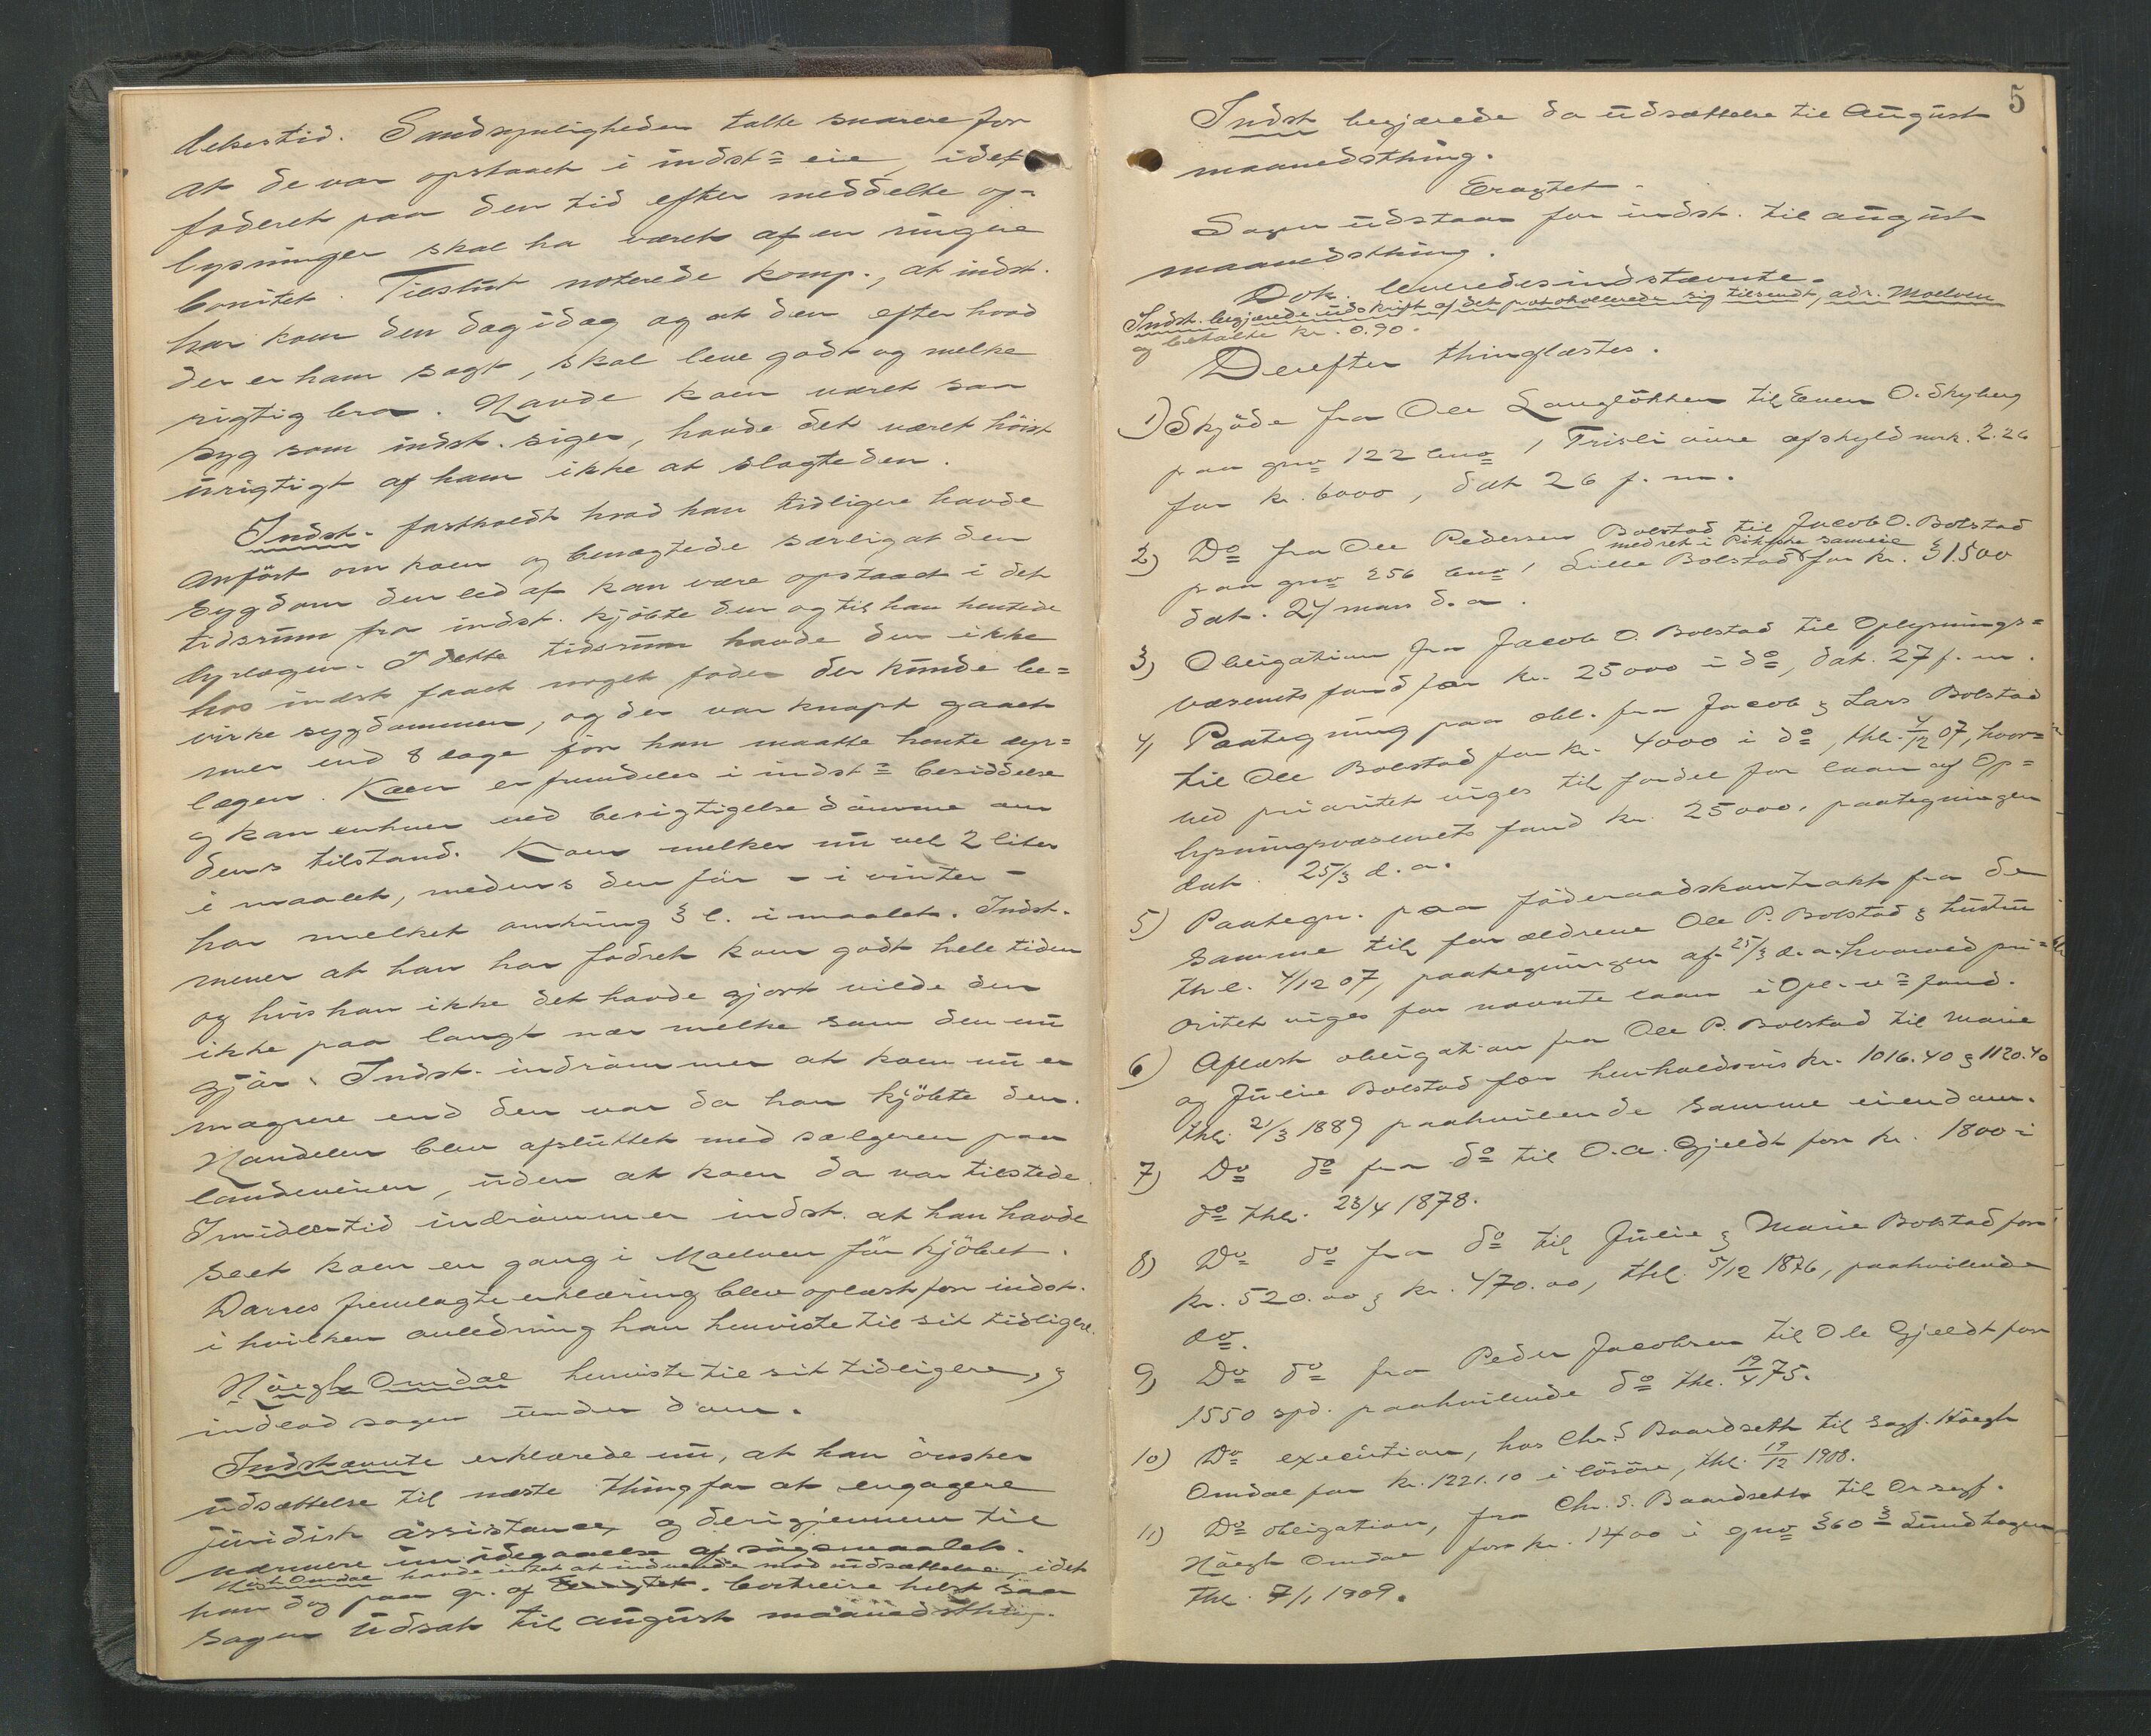 delsestid. Sandsynligheden talte snarere for
at de var opstaaet i indst= eie, idet
foderet paa den tid efter meddelte op-
lysninger skal ha været af en ringere
bonitet. Tilslut noterede komp., at indst.
har koen den dag idag og at den efter hvad
der er ham sagt, skal leve godt og melke
rigtig bra. Havde koen været saa
syg som indst. siger, havde det været höist
urigtigt af ham ikke at slagte den.
Indst. fastholdt hvad han tidligere havde
anfört om koen og benægtede særlig at den
sygdom den led af kan være opstaaet i det
tidsrum fra indst. kjöbte den og til han hentede
dyrlægen. I dette tidsrum havde den ikke
hos indst faaet noget foder der kunde be=
virke sygdommen, og der var knapt gaaet
mer end 8 dage för han maatte hente dyr=
lægen. Koen er fremdeles i indst= besiddelse
og kan enhver ved besigtigelse dömme om
dens tilstand. Koen melker nu vel 2 liter
i maalet, medens den för - i vinter -
har melket omkring 3 l. i maalet. Indst.
mener at han har fodret koen godt hele tiden
og hvis han ikke det havde gjort vilde den
ikke paa langt nær melke som den nu
gjör. Indst. indrömmer at koen nu er
magrere end den var da han kjöbte den.
Handelen blev afsluttet med sælgeren paa
landeveien, uden at koen da var tilstede.
Imidlertid indrömmer indst. at han havde
seet koen en gang i Moelven för kjöbet.
Darres fremlagte erklæring blev oplæst for indst.
i hvilken anledning han henviste til sit tidligere.
Höegh Omdal henviste til sit tidligere, &
indlod sagen under dom.
Indstævnte erklærede nu, at han önsker
udsættelse til næste thing for at engagere
juridisk assistance, og derigjennem til
nærmere imödegaaelse af sögsmaalet.
Höegh Omdal havde intet at indvende mod udsættelse, idet
han dog paa gr. af bortreise helst saa
sagen udsat til august maanedsthing.
5
Indst begjærede da udsættelse til August
maanedsthing.
Eragtet.
Sagen udstaar for indst. til august
maanedsthing.
Dok. leveredes indstævnte.
Indst. begjærede udskrift af det protokollerede sig tilsendt, adr. Moelven
og betalte kr. 0.90.
Derefter thinglæstes.
1) Skjöde fra Ole Langlökken til Even O. Skyberg
paa gno 122 bno 1 Trisli övre af skyld mrk. 2.26
for kr. 6000, dat 26 f. m.
2) Do fra Ole Pedersen Bolstad til Jacob O. Bolstad
med ret i samveie
paa gno 256 bno 1 Lille Bolstad for kr. 31.500
dat. 24 mars d. a.
3) Obligation fra Jacob O. Bolstad til Oplysnings=
væsenets fond for kr. 25000 i do, dat. 27 f. m.
4) Paategning paa obl. fra Jacob & Lars Bolstad
til Ole Bolstad for kr. 4000 i do, thl. 4/12 07, hvor=
ved prioritet viges til fordel for laan af Op=
lysningsvæsenets fond kr. 25000, paategningen
dat. 25/3 d. a.
5) Paategn. paa föderaadskontrakt fra de
samme til forældrene Ole P. Bolstad & hustru
thl. 4/12 07, paategningen af 25/3 d. a. hvorved pri=
oritet viges for nævnte laan i Opl. v= fond.
6) Aflæst obligation fra Ole P. Bolstad til Marie
og Julie Bolstad for henholdsvis kr. 1016.40 & 1120.40
thl. 21/3 1889 paahvilende samme eiendom.
7) Do do fra do til O. A. Gjeldt for kr. 1800 i
do thl. 23/4 1878.
8) Do do fra do til Julie & Marie Bolstad for
kr. 520.00 & kr. 470.00, thl. 5/12 1876, paahvilende
do.
9) Do do fra Peder Jacobsen til Ole Gjeldt for
1550 spd. paahvilende do thl. 19/4 75.
10) Do execution, hos Chr. S. Baardseth til sagf. Höegh
Omdal for kr. 1221.10 i lösöre, thl. 19/12 1908.
11) Do obligation, fra Chr. S. Baardseth til Orsagf.
Höegh Omdal for kr. 1400 i gno 360 3 Sundhagen
thl. 7/1 1909.